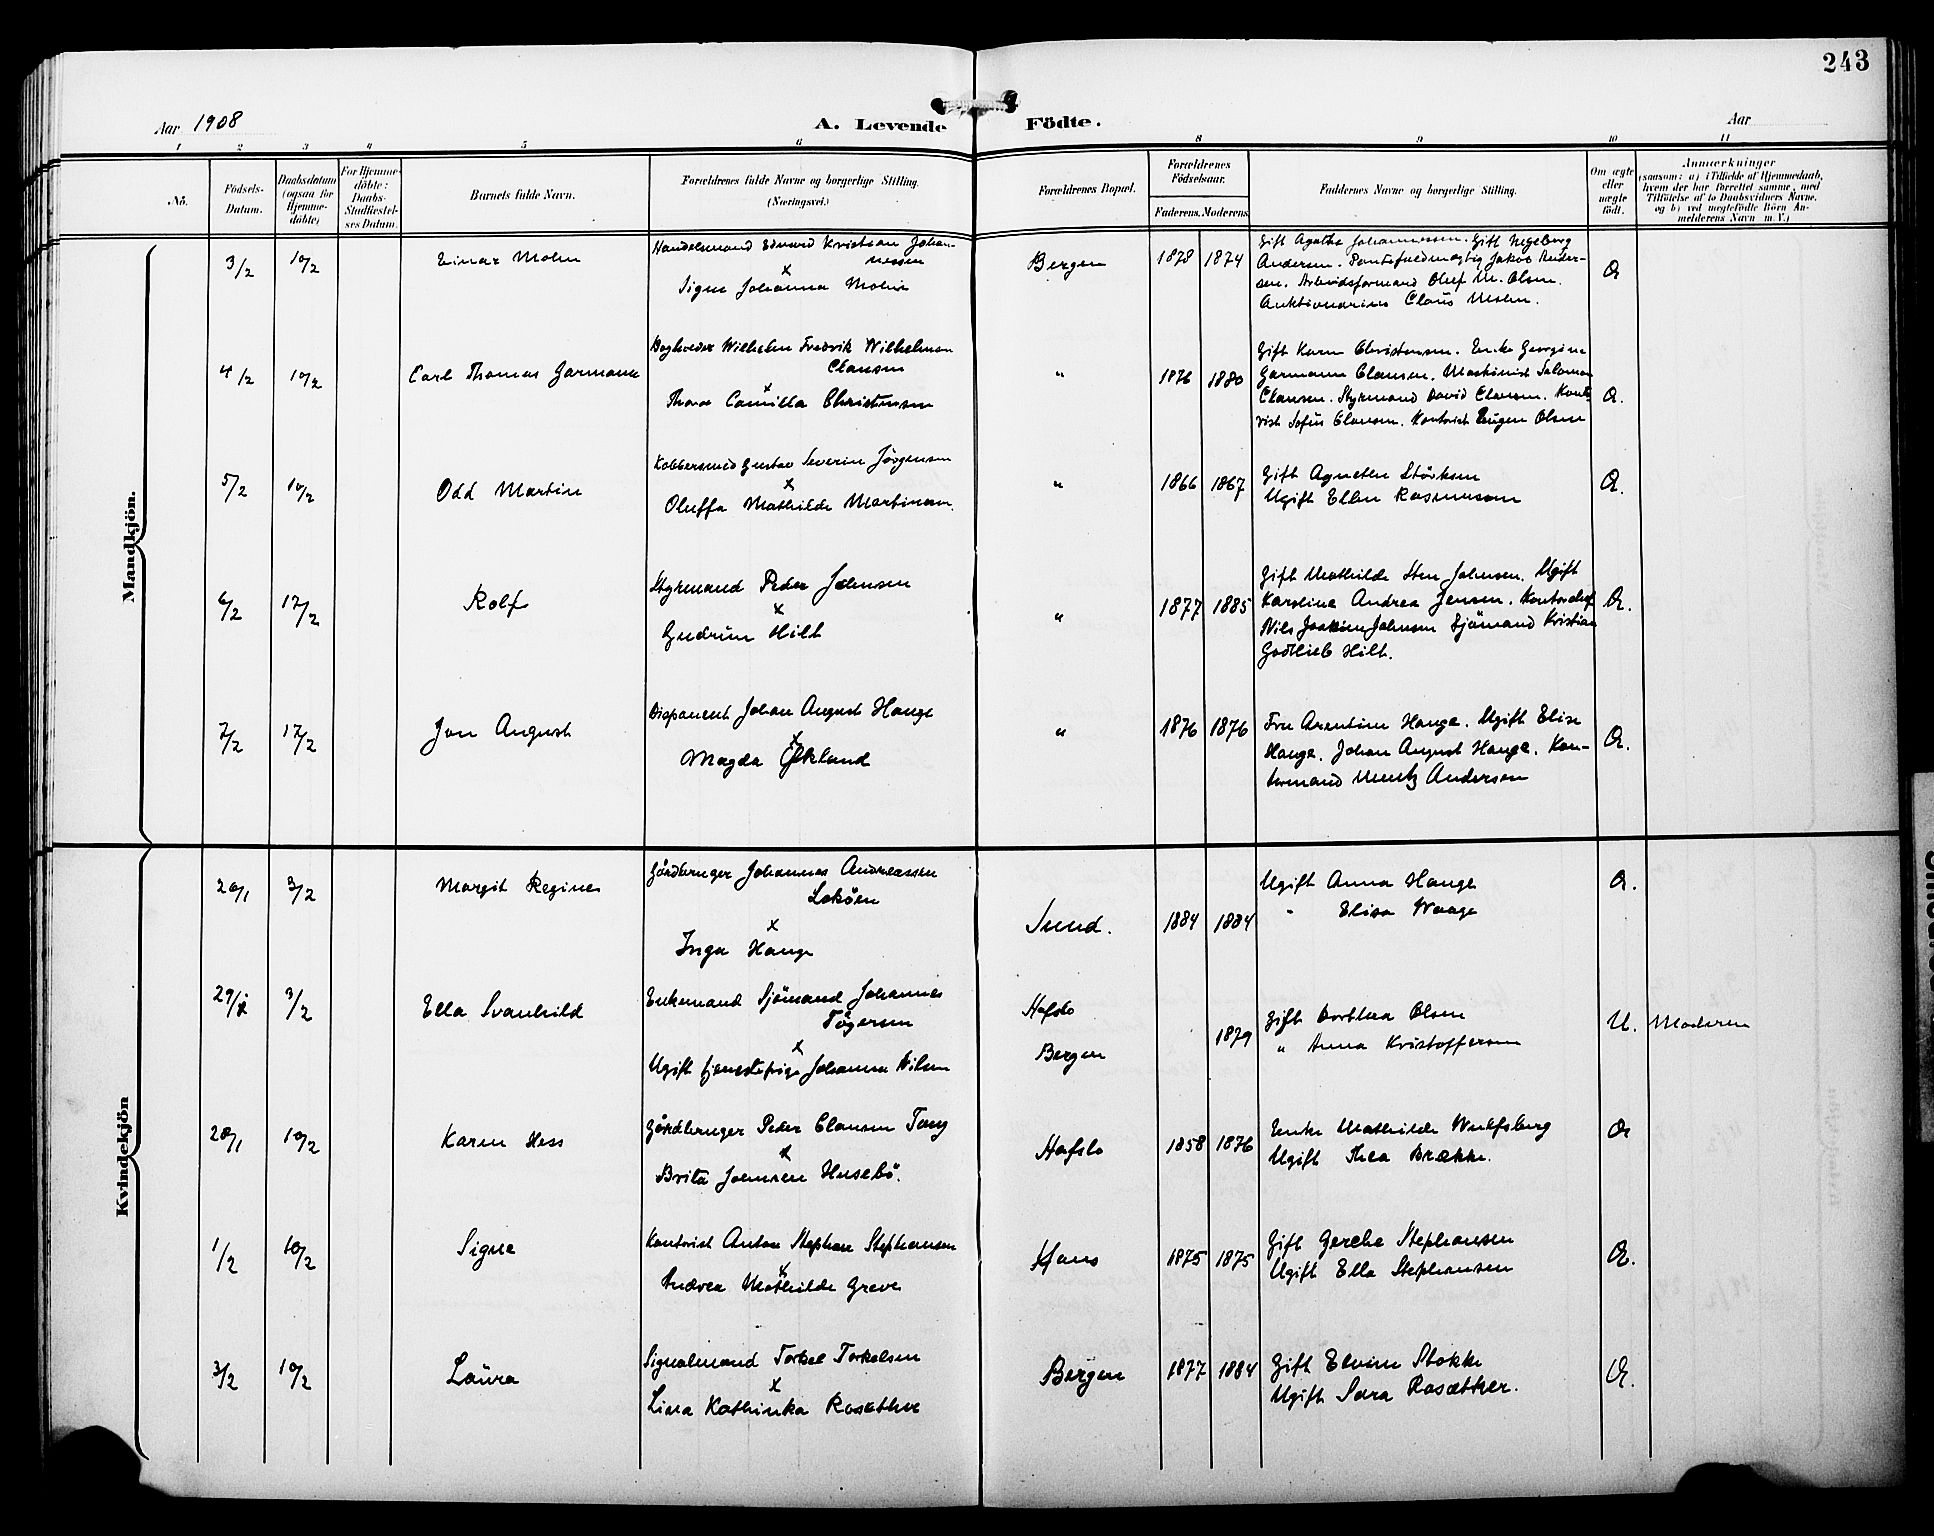 243
Aar 1908
A. Levende Födte.
Aar
1 2 3 4 5 6 8 9 10 11
Nö.
Födsels-Datum.
Daabsdatum (ogsaa for Hjemme-döbte)
For Hjemme-döbte: Daabs-Stadfæstel-ses Datum.
Barnets fulde Navn.
Forældrenes fulde Navne og borgerlige Stilling. (Næringsvei.)
Forældrenes Bopæl.
Forældrenes Födselsaar.
Faderens. Moderens.
Faddernes Navne og borgerlige Stilling.
Om ægte eller uægte födt.
Anmærkninger
(saasom: a) i Tilfælde af Hjemmedaab,
hvem der har forrettet samme, med
Tilföielse af to Daabsvidners Navne,
og b) ved uægtefödte Börn An-
melderens Navn m. V.)
Mandkjön.
3/2 10/2 Einar Molin
Handelsmand Edvard Kristian Johan-
nessen
x
Signe Johanna Molin
Bergen 1878 1874
Gift Agathe Johannessen. Gift Ingeborg
Andersen. Jakob Ander-
sen. Arbeidsformand Oluf M. Olsen.
Auktionarius Claus Molin.
Æ
4/2 10/2 Carl Thomas Garmann
Bogholder Wilhelm Fredrik Wilhelmsen
Clausen
x
Thora Camilla Christensen
" 1876 1880
Gift Karen Christensen. Enke Georgine
Garmann Clausen. Maskinist Salomon
Clausen. Styrmand David Clausen. Konto-
rist Sofus Clausen. Kontorist Eugen Olsen
Æ.
5/2 10/2 Odd Martin
Kobbersmed Gustav Severin Jörgensen
x
Oluffa Mathilde Martinsen.
" 1866 1867
Gift Agnethe Störksen
Ugift Ellen Rasmussen
Æ.
6/2 17/2 Rolf
Styrmand Peder Johnsen
x
Gudrun Hilt
" 1877 1885
Gift Mathilde Johnsen. Ugift
Karoline Andrea Jensen. Kontorchef
Nils Joakim Johnsen Sjömand Kristian
Godtlieb Hilt.
Æ.
7/2 17/2 Jon August
Disponent Johan August Hauge
x
Magda Økland
" 1876 1876
Fru Arentine Hauge. Ugift Elise
Hauge. Johan August Hauge. Kon-
tormand Mentz Andersen
Æ.
Kvindekjön
26/1 3/2 Margit Regine
Gårdbruger Johannes Andreassen
Loköen
x
Inga Hauge
Sund. 1884 1884
Ugift Anna Hauge
" Elisa Waage
Æ.
29/1 3/2 Ella Svanhild
Enkemand Sjömand Johannes
Tögersen
x
Ugift tjenestepige Johanna Nilsen
Hafslo
Bergen
1879
Gift Dorthea Olsen
" Anna Kristoffersen
U. Moderen
28/1 10/2 Karen Hess
Gårdbruger Peder Clausen Tang
x
Brita Johnsen Husebö.
Hafslo 1858 1876
Enke Mathilde Wulfsberg
Ugift Thea Brække.
Æ
1/2 10/2 Signe
Kontorist Anton Stephan Stephansen
x
Andrea Mathilde Greve
Haus 1875 1875
Gift Gerche Stephansen
Ugift Ella Stephansen
Æ.
3/2 10/2 Laura
Signalmand Torkel Torkelsen
x
Lina Kathinka Rosæther
Bergen 1877 1884
Gift Elvine Stokke
Ugift Sara Rosæther.
Æ.